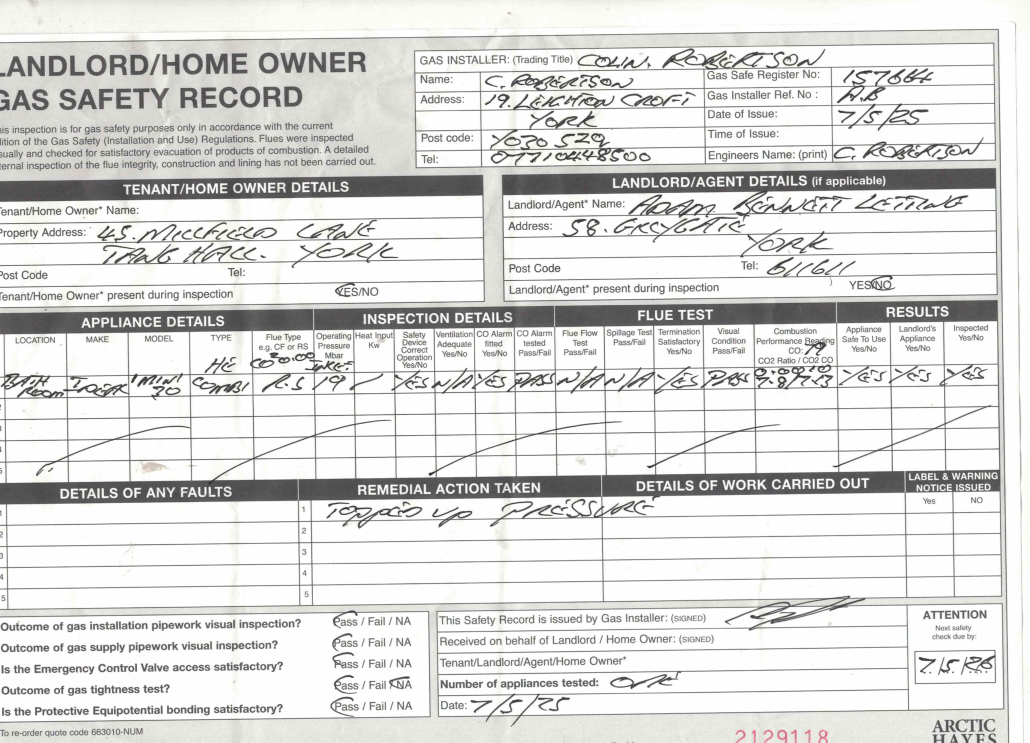 LANDLORD/HOME OWNER
GAS SAFETY RECORD
his inspection is for gas safety purposes only in accordance with the current
dition of the Gas Safety (Installation and Use) Regulations. Flues were inspected
sually and checked for satisfactory evacuation of products of combustion. A detailed
ternal inspection of the flue integrity, construction and lining has not been carried out.
GAS INSTALLER: (Trading Title) COLIN. ROBERTSON
Name: C. ROBERTSON
Gas Safe Register No: 157664
Address: 19. LEIGHTON CROFT
Gas Installer Ref. No : A.B
YORK
Date of Issue: 7/5/25
Post code: YO30 5
Time of Issue:
Tel: 07710448500
Engineers Name: (print) C. ROBERTSON
TENANT/HOME OWNER DETAILS
Tenant/Home Owner* Name:
Property Address: 45. MILLFIELD LANE
TANG HALL. YORK
Post Code Tel:
Tenant/Home Owner* present during inspection YES/NO
LANDLORD/AGENT DETAILS (if applicable)
Landlord/Agent* Name: ADAM BENNETT LETTING
Address: 58. GILLYGATE
YORK
Post Code Tel: 611611
Landlord/Agent* present during inspection YES/NO
APPLIANCE DETAILS INSPECTION DETAILS FLUE TEST RESULTS
LOCATION MAKE MODEL TYPE Flue Type e.g. CF or RS Operating Pressure Mbar Heat Input Kw Safety Device Correct Operation Yes/No Ventilation Adequate Yes/No CO Alarm fitted Yes/No CO Alarm tested Pass/Fail Flue Flow Test Pass/Fail Spillage Test Pass/Fail Termination Satisfactory Yes/No Visual Condition Pass/Fail Combustion Performance Reading CO: 79 CO2 Ratio / CO2 CO Appliance Safe To Use Yes/No Landlord's Appliance Yes/No Inspected Yes/No
HE
BATH ROOM IDEAL MINI 30 COMBI R.S 19 / YES N/A YES PASS N/A N/A YES PASS YES YES YES
2
3
4
5
DETAILS OF ANY FAULTS REMEDIAL ACTION TAKEN DETAILS OF WORK CARRIED OUT LABEL & WARNING NOTICE ISSUED
Yes NO
1 1 TOPPED UP PRESSURE
2 2
3 3
4 4
5 5
Outcome of gas installation pipework visual inspection? Pass / Fail / NA
Outcome of gas supply pipework visual inspection? Pass / Fail / NA
Is the Emergency Control Valve access satisfactory? Pass / Fail / NA
Outcome of gas tightness test? Pass / Fail / NA
Is the Protective Equipotential bonding satisfactory? Pass / Fail / NA
This Safety Record is issued by Gas Installer: (SIGNED)
Received on behalf of Landlord / Home Owner: (SIGNED)
Tenant/Landlord/Agent/Home Owner*
Number of appliances tested: ONE
Date: 7/5/25
ATTENTION
Next safety
check due by:
7/5/26
To re-order quote code 663010-NUM
2129118
ARCTIC
HAYES